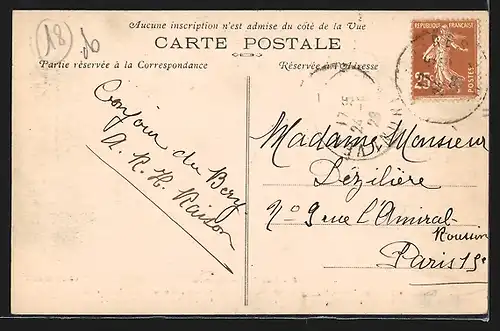 (18)
Aucune inscription n'est admise du côté de la Vue
CARTE POSTALE
Partie réservée à la Correspondance
Réservée à l'Adresse
REPUBLIQUE FRANÇAISE
25c
POSTES
17 35
24
28
Bonjour du Berry
A. R. H. Raison
Madame Monsieur
Dézilière
No 9 rue l'Amiral
Roussin
Paris 15e